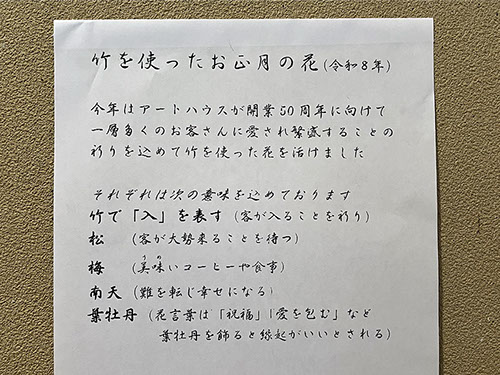 竹を使ったお正月の花(令和8年)
今年はアートハウスが開業50周年に向けて
一層多くのお客さんに愛され繁盛することの
祈りを込めて竹を使った花を活けました
それぞれは次の意味を込めております
竹で「入」を表す(客が入ることを祈り)
松 (客が大勢来ることを待つ)
梅 (美味いコーヒーや食事)
南天(難を転じ幸せになる)
葉牡丹(花言葉は「祝福」「愛を包む」など
葉牡丹を飾ると縁起がいいとされる)